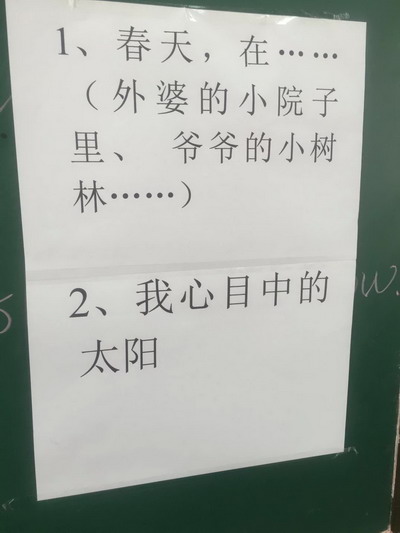 1、春天，在……
（外婆的小院子
里、 爷爷的小树
林……）
2、我心目中的
太阳
w.